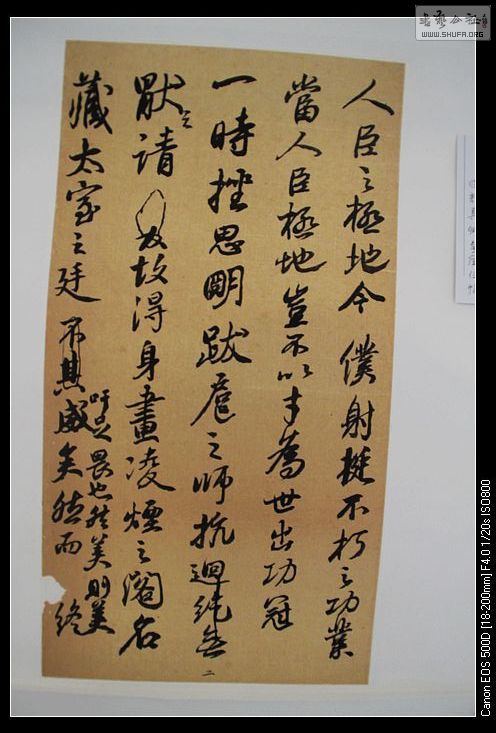 書藝公社
WWW.SHUFA.ORG
人臣之極地今僕射挺不朽之功業
當人臣極地豈不以才為世出功冠
一時挫思明跋扈之師抗迴紇無
厭之請故得身畫凌煙之閣名
藏太室之廷
吁足畏也然美則美
其盛矣然而終
二
Canon EOS 500D [18-200mm] F4.0 1/20s ISO800